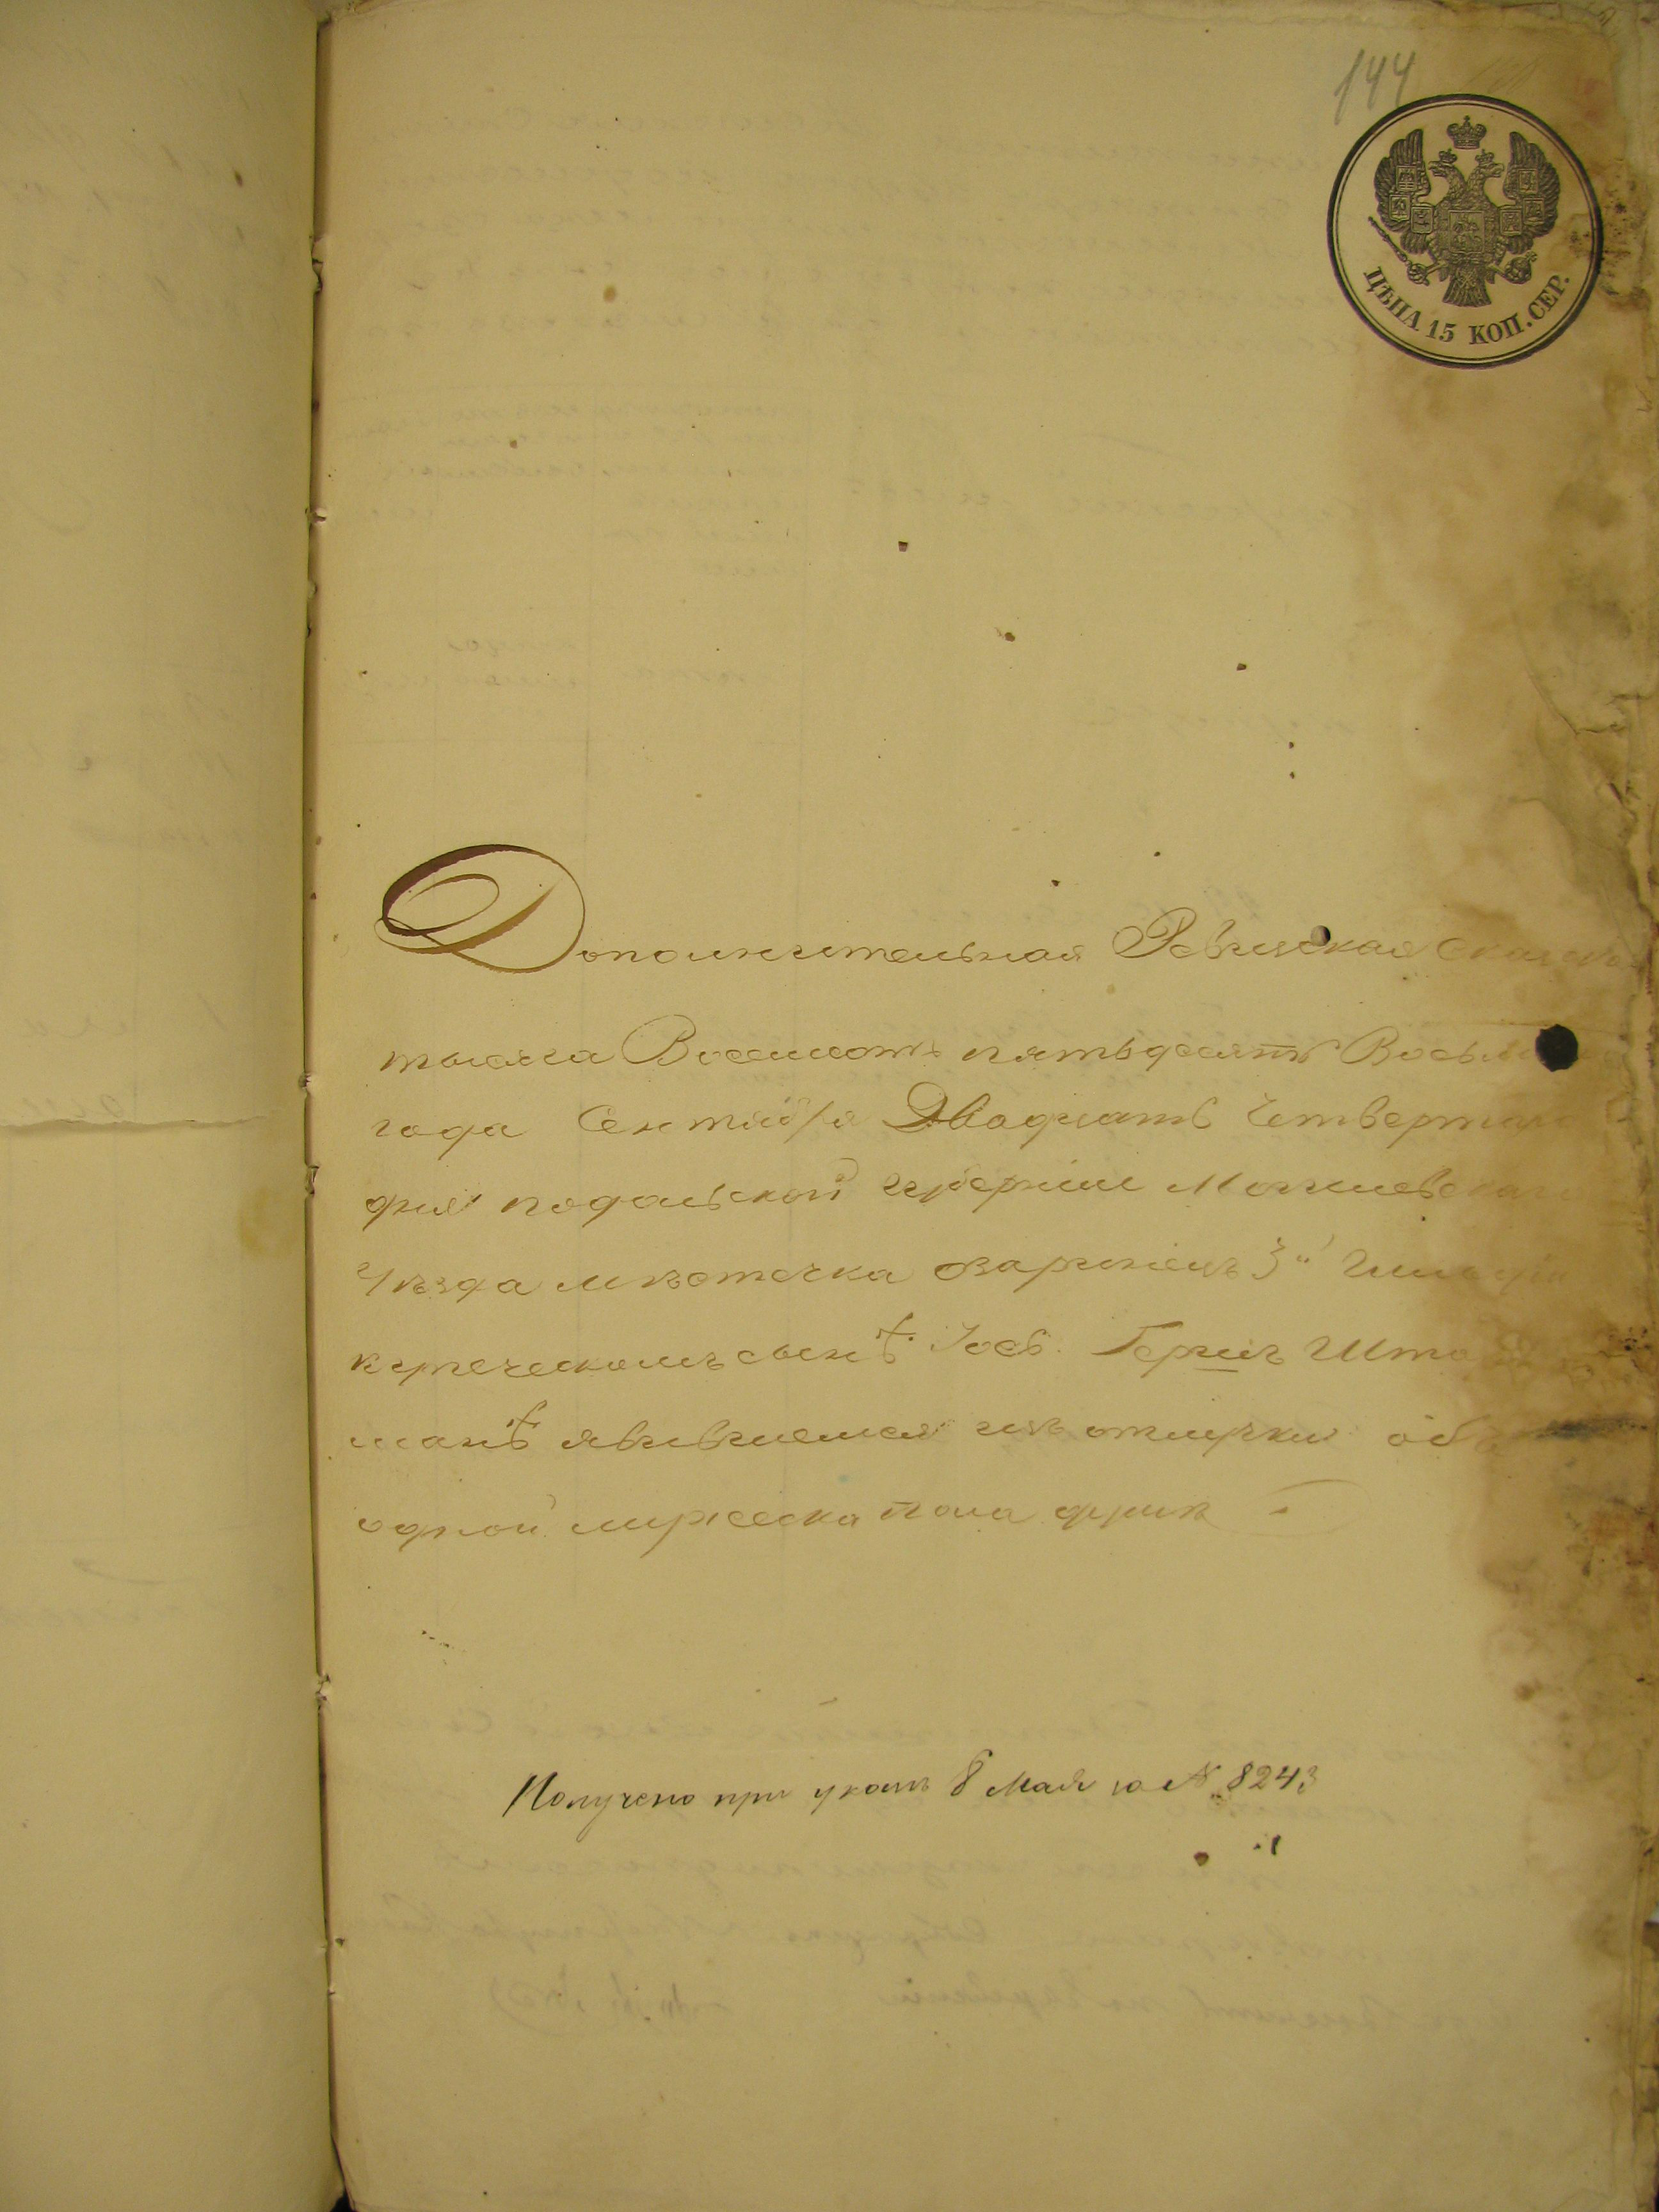 144
ЦѢНА 15 КОП. СЕР.
Дополнительная Ревизская Сказка
тысяча Восемсотъ пятьдесятъ Восьма
года Сентября Двадцать Четвертаго
дня подольской губерніи Могилевскаго
Уѣзда мѣстечка озаринецъ 3й Гильдіи
купеческомъ сынѣ Іосѣ Гершъ Што
манѣ явившемся изъ отлучки объ
одной мужеска пола душѣ
Получено при указѣ 8 Мая за № 8243